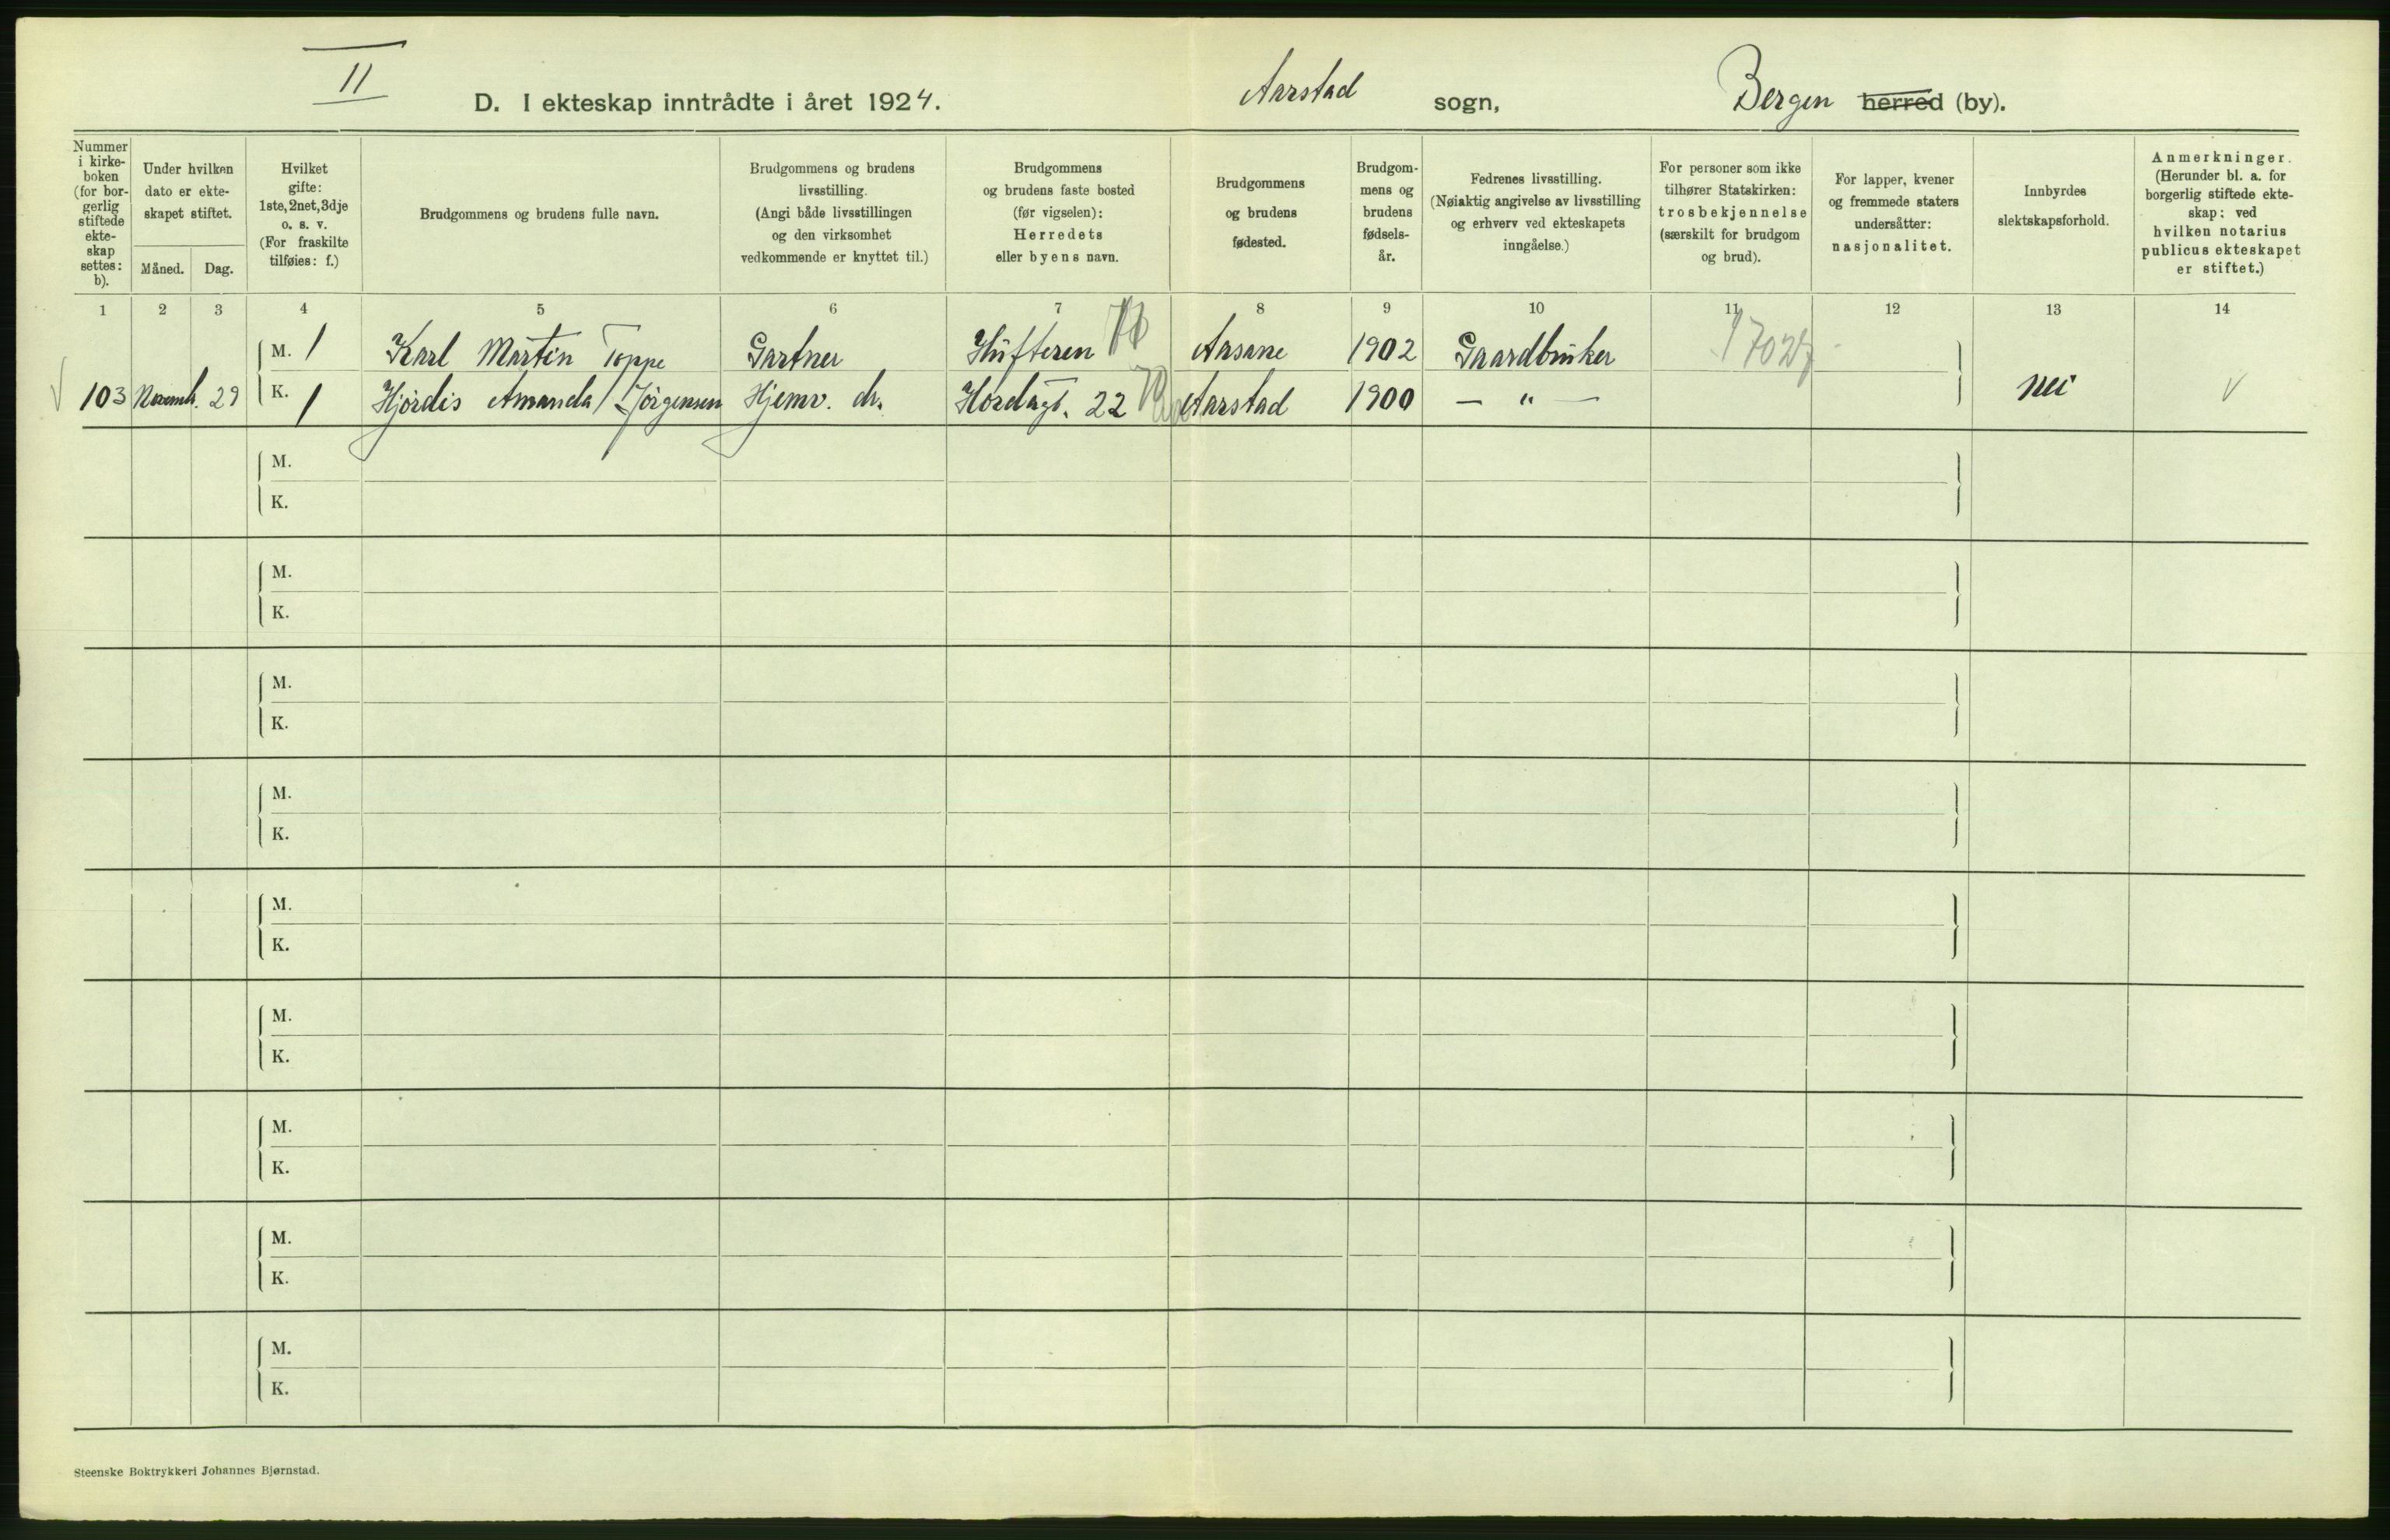 II
D. I ekteskap inntrådte i året 1924.
Aarstad sogn,
Bergen herred (by).
Nummer i kirke-boken (for bor-gerlig stiftede ekte-skap settes: b).
Under hvilken dato er ekte-skapet stiftet.
Måned. Dag.
Hvilket gifte: 1ste, 2net, 3dje o. s. v. (For fraskilte tilføies: f.)
Brudgommens og brudens fulle navn.
Brudgommens og brudens livsstilling. (Angi både livsstillingen og den virksomhet vedkommende er knyttet til.)
Brudgommens og brudens faste bosted (før vigselen): Herredets eller byens navn.
Brudgommens og brudens fødested.
Brudgom-mens og brudens fødsels-år.
Fedrenes livsstilling. (Nøiaktig angivelse av livsstilling og erhverv ved ekteskapets inngåelse.)
For personer som ikke tilhører Statskirken: trosbekjennelse (særskilt for brudgom og brud).
For lapper, kvener og fremmede staters undersåtter: nasjonalitet.
Innbyrdes slektskapsforhold.
Anmerkninger. (Herunder bl. a. for borgerlig stiftede ekte-skap: ved hvilken notarius publicus ekteskapet er stiftet.)
1 2 3 4 5 6 7 8 9 10 11 12 13 14
M. 1 Karl Martin Toppe Gartner Hufteren Aasane 1902 Gaardbruker
103 Novemb. 29 K. 1 Hjördis Amanda Jörgensen Hjemv. dr. Hordagt. 22 Aarstad 1900 — " — nei
M.
K.
M.
K.
M.
K.
M.
K.
M.
K.
M.
K.
M.
K.
M.
K.
M.
K.
Steenske Boktrykkeri Johannes Bjørnstad.